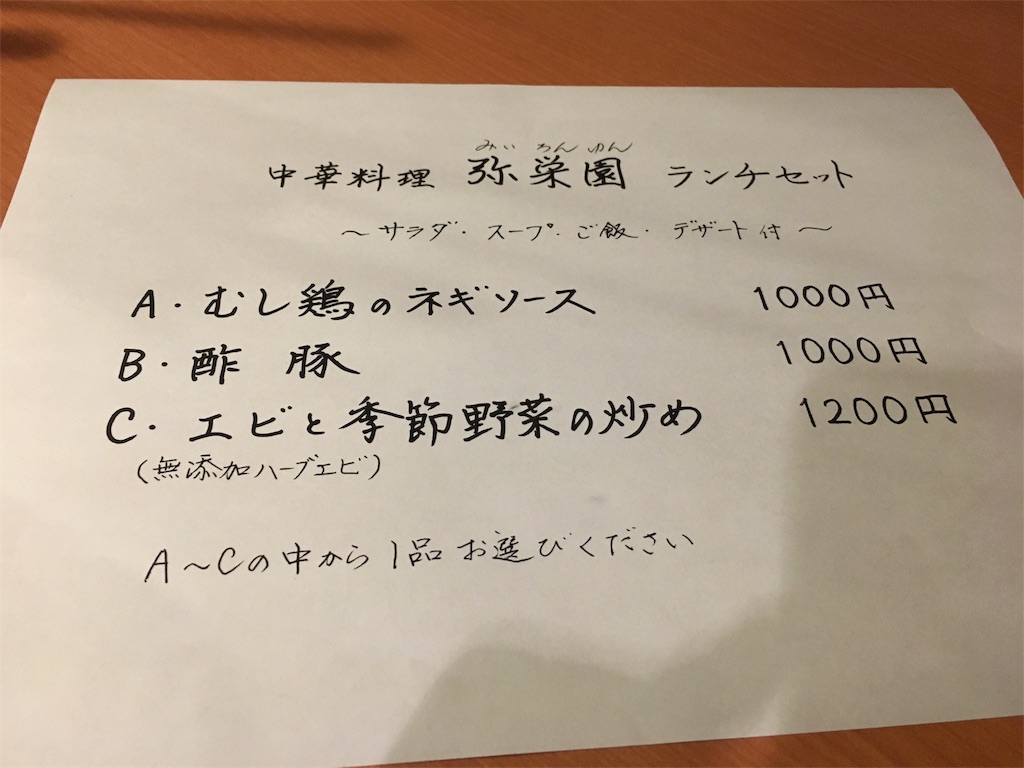 みい ろん ゆん
中華料理 弥栄園 ランチセット
～サラダ・スープ・ご飯・デザート付～
A・むし鶏のネギソース 1000円
B・酢 豚 1000円
C・エビと季節野菜の炒め 1200円
(無添加ハーブエビ)
A～Cの中から1品お選びください